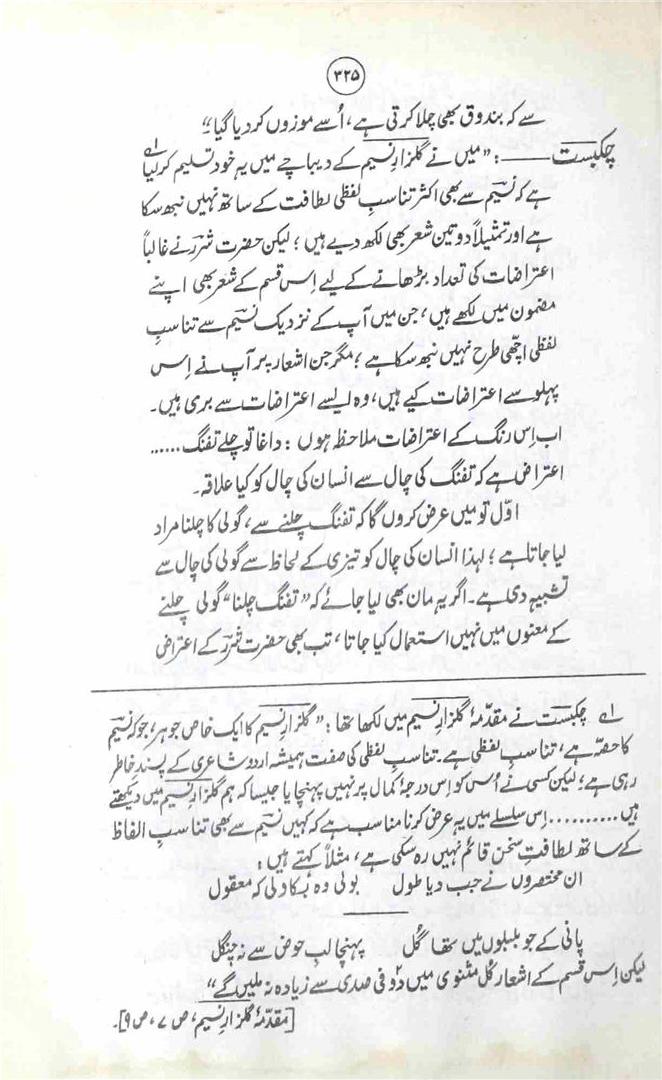 ۳۲۵
سے کہ بندوق بھی چلا کرتی ہے، اُسے موزوں کر دیا گیا"۔
چکبستؔ ــــــ : "میں نے گلزارِ نسیم کے دیباچے میں یہ خود تسلیم کر لیا ؂۱
ہے کہ نسیمؔ سے بھی اکثر تناسبِ لفظی لطافت کے ساتھ نہیں نبھ سکا
ہے اور تمثیلاً دو تین شعر بھی لکھ دیے ہیں؛ لیکن حضرت شررؔ نے غالباً
اعتراضات کی تعداد بڑھانے کے لیے اِس قسم کے شعر بھی اپنے
مضمون میں لکھے ہیں، جن میں آپ کے نزدیک نسیمؔ سے تناسبِ
لفظی اچھّی طرح نہیں نبھ سکا ہے؛ مگر جن اشعار پر آپ نے اِس
پہلو سے اعتراضات کیے ہیں، وہ ایسے اعتراضات سے بری ہیں۔
اب اِس رنگ کے اعتراضات ملاحظہ ہوں: داغا تو چلے تفنگ......
اعتراض ہے کہ تفنگ کی چال سے انسان کی چال کو کیا علاقہ۔
اوّل تو میں عرض کروں گا کہ تفنگ چلنے سے، گولی کا چلنا مراد
لیا جاتا ہے؛ لہٰذا انسان کی چال کو تیزی کے لحاظ سے گولی کی چال سے
تشبیہ دی ہے۔ اگر یہ مان بھی لیا جائے کہ "تفنگ چلنا" گولی چلنے
کے معنوں میں نہیں استعمال کیا جاتا، تب بھی حضرت شررؔ کے اعتراض
؂۱ چکبستؔ نے مقدّمۂ گلزارِ نسیم میں لکھا تھا: "گلزارِ نسیم کا ایک خاص جوہر، جو کہ نسیمؔ
کا حصّہ ہے، تناسبِ لفظی ہے۔ تناسبِ لفظی کی صفت ہمیشہ اردو شاعری کے پسندِ خاطر
رہی ہے؛ لیکن کسی نے اُس کو اِس درجۂ کمال پر نہیں پہنچایا جیسا کہ ہم گلزارِ نسیم میں دیکھتے
ہیں.......... اِس سلسلے میں یہ عرض کرنا مناسب ہے کہ کہیں نسیمؔ سے بھی تناسبِ الفاظ
کے ساتھ لطافتِ سخن قائم نہیں رہ سکی ہے، مثلاً کہتے ہیں:
ان مختصروں نے جب دیا طول بولی وہ بکاولی کہ معقول
پانی کے جو بلبلوں میں تھا گُل پہنچا لبِ حوض سے نہ چنگل
لیکن اِس قسم کے اشعار کُل مثنوی میں دو فی صدی سے زیادہ نہ ملیں گے"
[مقدّمۂ گلزارِ نسیم، ص ۷، ص ۹]۔